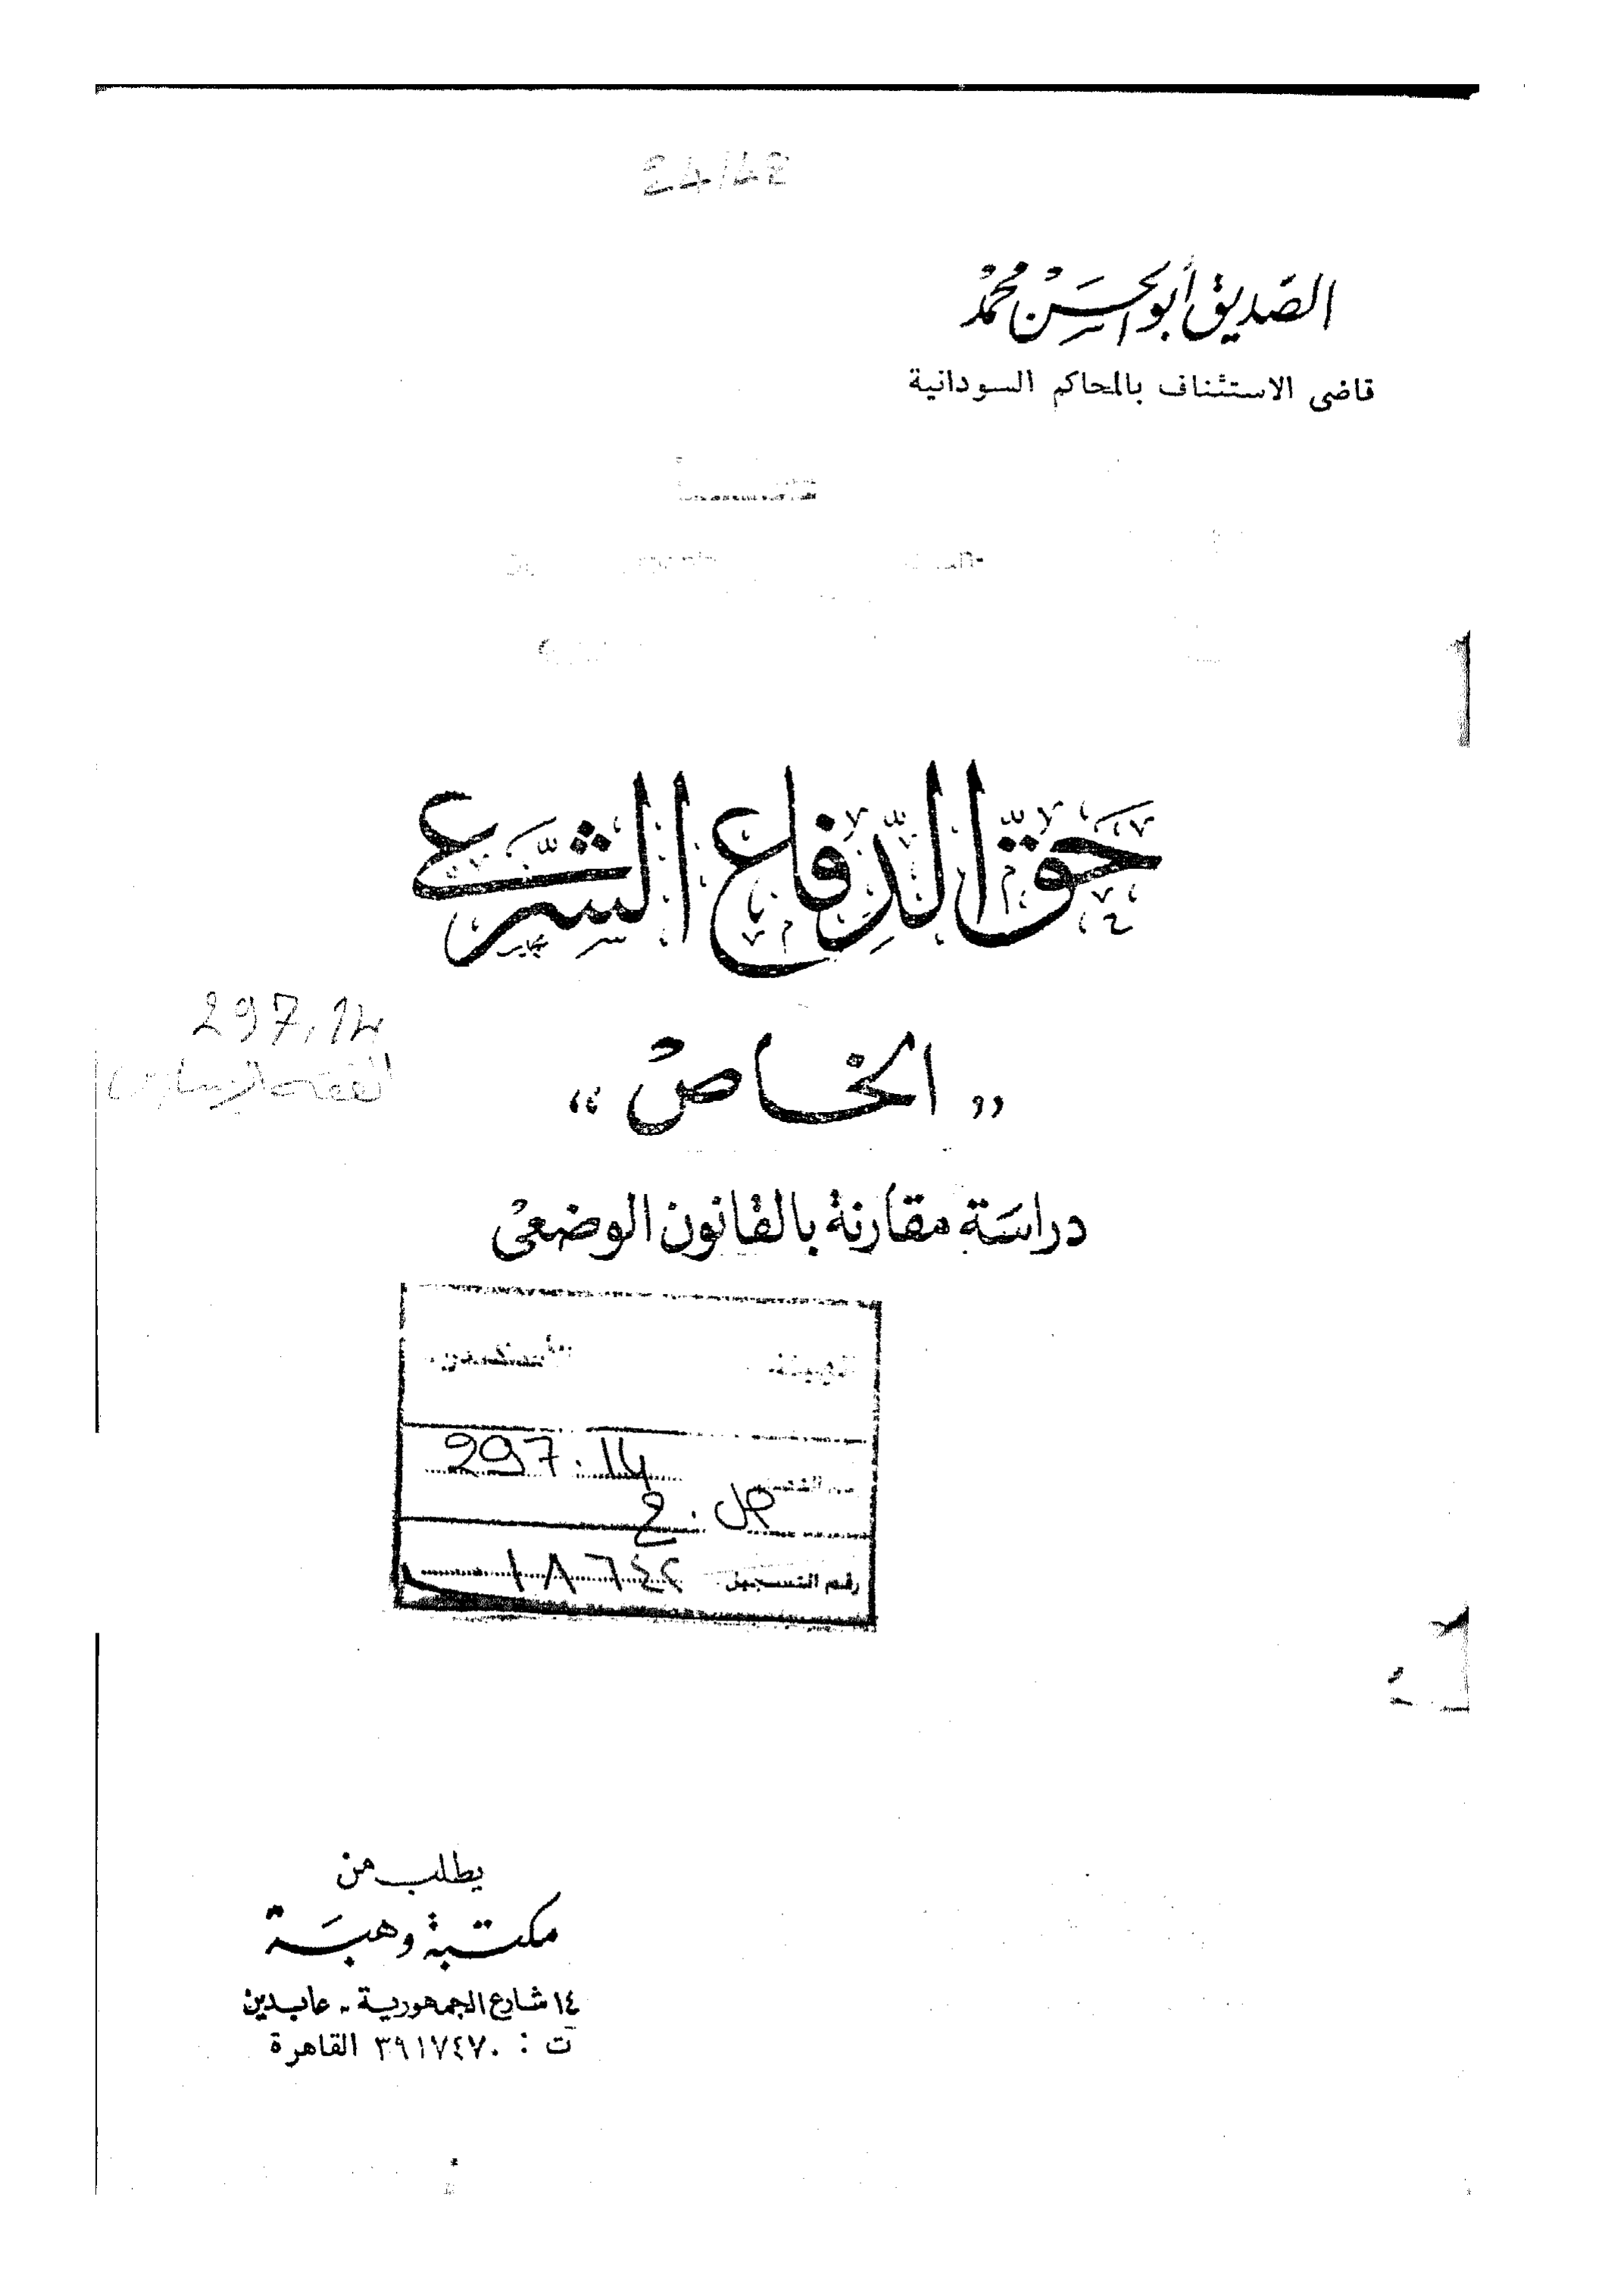 الصديق أبو الحسن محمد
قاضى الاستئناف بالمحاكم السودانية
حق الدفاع الشرعى
„ الخاص “
دراسة مقارنة بالقانون الوضعى
297.14
الفقه الإسلامى
297.14
ص . ح
رقم التسجيل ١٨٦٤٢
يطلب من
مكتبة وهبة
١٤ شارع الجمهورية - عابدين
ت : ٣٩١٧٤٧٠ القاهرة